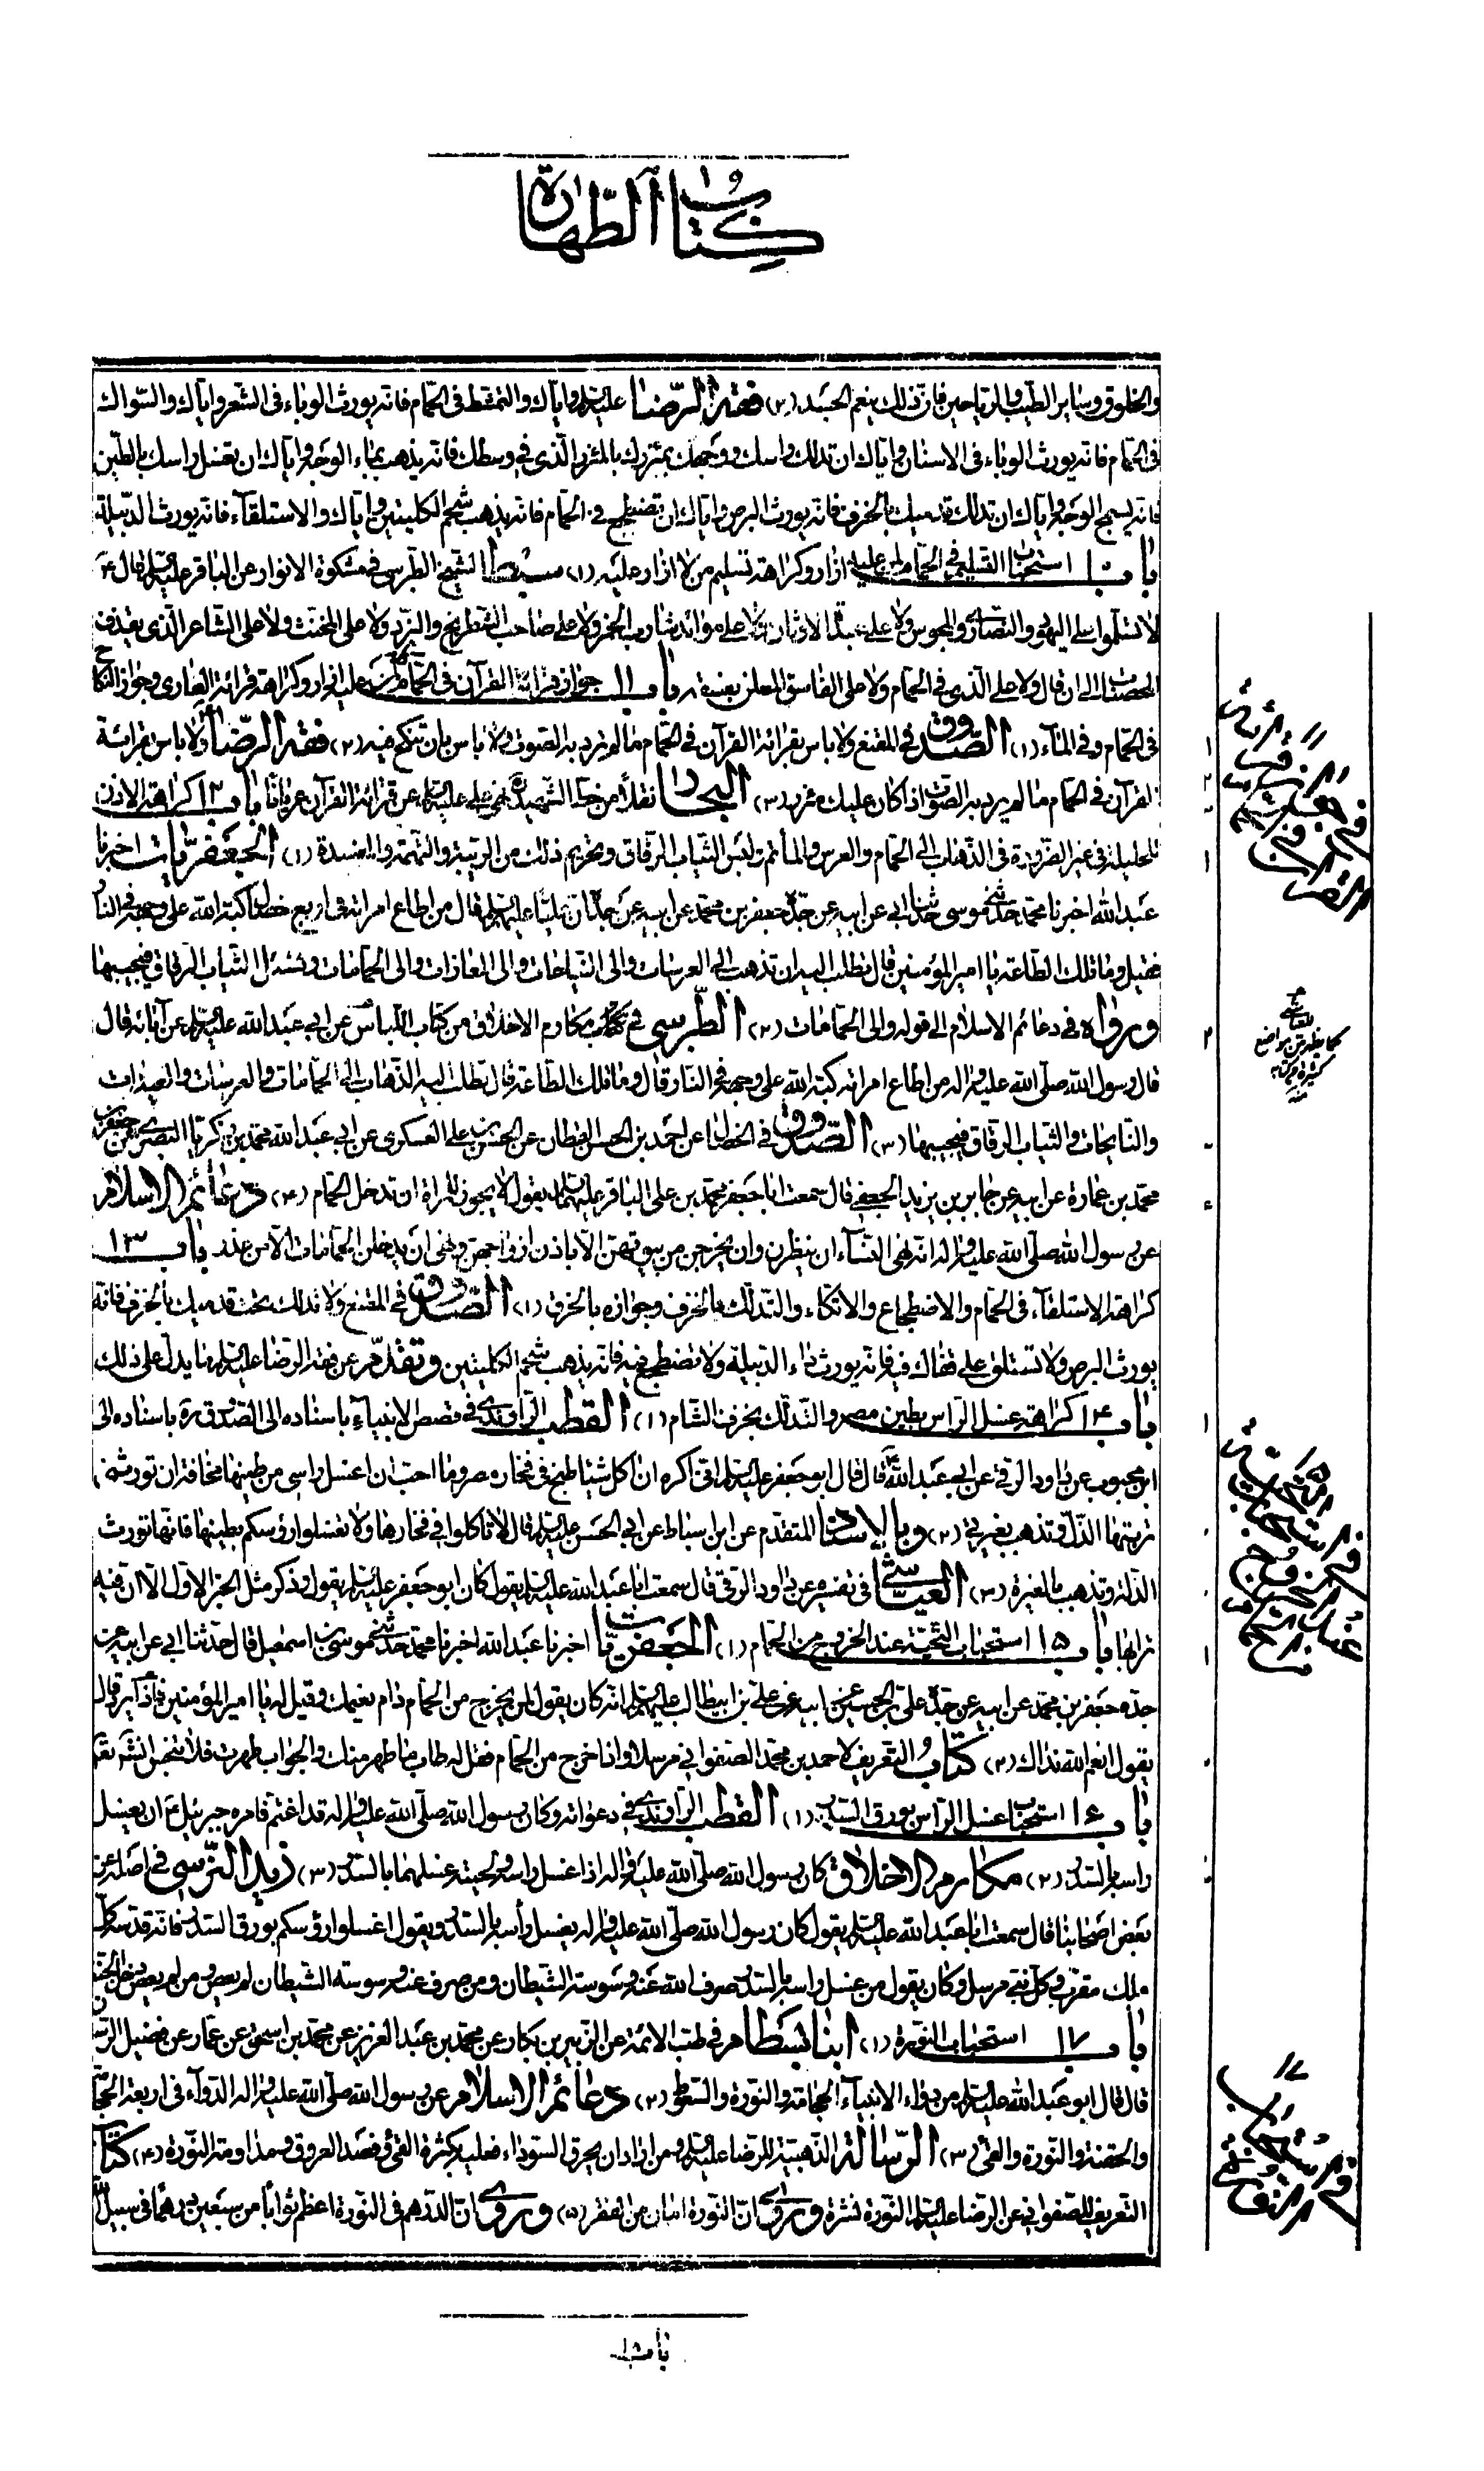 كتاب الطهارة
والخلوق وساير الطيب والرياحين فان ذلك ينعم الجسد (٢) فقه الرضا عليه السلم واياك والتمشط في الحمام فانه يورث الوباء في الشعر واياك والسواك
في الحمام فانه يورث الوباء في الاسنان واياك ان تدلك راسك ووجهك بمئزرك بالمئزر الذي في وسطك فانه يذهب بماء الوجه واياك ان تغسل راسك بالطين
فانه يسمج الوجه واياك ان تدلك قدميك بالخزف فانه يورث البرص واياك ان تضطجع في الحمام فانه يذهب شحم الكليتين واياك والاستلقاء فانه يورث الدبيلة
باب ١٠ استحباب التسليم في الحمام لمن عليه ازار وكراهة تسليم من لا ازار عليه (١) سبط الشيخ الطبرسي في مشكوة الانوار عن الباقر عليه السلم قال
لا تسلموا على اليهود والنصارى والمجوس ولا على عبدة الاوثان ولا على موائد شارب الخمر ولا على صاحب الشطرنج والنرد ولا على المخنث ولا على الشاعر الذي يقذف
المحصنات الى ان قال ولا على الذي في الحمام ولا على الفاسق المعلن بفسقه باب ١١ جواز قرائة القرآن في الحمام لمن عليه ازار وكراهة قرائة العاري وجواز النكاح
في الحمام وفي الماء (١) الصدوق في المقنع ولا باس بقرائة القرآن في الحمام ما لم يرد به الصوت ولا باس بان تنكح فيه (٢) فقه الرضا ولا باس بقرائة
القرآن في الحمام ما لم يرد به الصوت اذا كان عليك مئزر (٣) البحار نقلا من خط الشهيد نهى علي عليه السلم عن قرائة القرآن عريانا باب ١٢ كراهة الاذن
للحليلة في غير الضرورة في الذهاب الى الحمام والعرس والمأتم ولبس الثياب الرقاق وتحريم ذلك مع الريبة والتهمة والمفسدة (١) الجعفريات اخبرنا
عبد الله اخبرنا محمد حدثني موسى حدثنا ابي عن ابيه عن جده جعفر بن محمد عن ابيه عن جده ان عليا عليه السلم قال من اطاع امراته في اربع خصال كبه الله على وجهه في النار
فقيل وما تلك الطاعة يا امير المؤمنين قال تطلب اليه ان تذهب الى العرسات والى النياحات والى المغازات والى الحمامات وتسئل الثياب الرقاق فيجيبها
ورواه في دعائم الاسلام الى قوله والى الحمامات (٢) الطبرسي في مكارم الاخلاق من كتاب اللباس عن ابي عبد الله عليه السلم عن آبائه قال
قال رسول الله صلى الله عليه واله من اطاع امراته كبه الله على وجهه في النار وقال وما تلك الطاعة قال تطلب اليه الذهاب الى الحمامات والعرسات والعيدات
والنايحات والثياب الرقاق فيجيبها (٣) الصدوق في الخصال عن احمد بن الحسن القطان عن الحسن بن علي العسكري عن ابي عبد الله محمد بن زكريا البصري عن جعفر بن
محمد بن عمارة عن ابيه عن جابر بن يزيد الجعفي قال سمعت ابا جعفر محمد بن علي الباقر عليهما السلم يقول لا يجوز للمراة ان تدخل الحمام (٤) دعائم الاسلام
عن رسول الله صلى الله عليه واله انه نهى النساء ان ينظرن وان يخرجن من بيوتهن الا باذن ازواجهن ونهى ان يدخلن الحمامات الا من عذر باب ١٣
كراهة الاستلقاء في الحمام والاضطجاع والاتكاء والتدلك بالخزف وجوازه بالخرق (١) الصدوق في المقنع ولا تدلك تحت قدميك بالخزف فانه
يورث البرص ولا تستلق على قفاك فيه فانه يورث داء الدبيلة ولا تضطجع فيه فانه يذهب شحم الكليتين وتقدم عن فقه الرضا عليه السلم ما يدل على ذلك
باب ١٤ كراهة غسل الراس بطين مصر والتدلك بخزف الشام (١) القطب الراوندي في قصص الانبياء باسناده الى الصدوق ره باسناده الى
ابن محبوب عن داود الرقي عن ابي عبد الله قال قال ابو جعفر عليه السلم اني اكره ان آكل شيئا طبخ في فخار مصر وما احب ان اغسل راسي من طينها مخافة ان تورثني
تربتها الذل وتذهب بغيرتي (٢) وبالاسناد المتقدم عن ابن اسباط عن ابي الحسن عليه السلم قال لا تاكلوا في فخارها ولا تغسلوا رؤسكم بطينها فانها تورث
الذلة وتذهب بالغيرة (٣) العياشي في تفسيره عن داود الرقي قال سمعت ابا عبد الله عليه السلم يقول كان ابو جعفر عليه السلم يقول وذكر مثل الخبر الاول الا ان فيه
ترابها باب ١٥ استحباب التحية عند الخروج من الحمام (١) الجعفريات اخبرنا عبد الله اخبرنا محمد حدثني موسى بن اسمعيل قال حدثنا ابي عن ابيه عن
جده جعفر بن محمد عن ابيه عن جده علي بن الحسين عن ابيه عن علي بن ابيطالب عليهم السلم انه كان يقول لمن يخرج من الحمام دام نعيمك وقيل له يا امير المؤمنين فما يرد قال
يقول انعم الله بذلك (٢) كتاب التعريف لاحمد بن محمد الصفواني مرسلا واذا خرج من الحمام فقل له طاب ما طهر منك والجواب طهرت فلا تنجس انشاء الله تعالى
باب ١٦ استحباب غسل الراس بورق السدر (١) القطب الراوندي في دعواته وكان رسول الله صلى الله عليه واله قد اغتم فامره جبرئيل ع ان يغسل
راسه بالسدر (٢) مكارم الاخلاق كان رسول الله صلى الله عليه واله اذا غسل راسه ولحيته غسلهما بالسدر (٣) زيد النرسي في اصله عن
بعض اصحابنا قال سمعت ابا عبد الله عليه السلم يقول كان رسول الله صلى الله عليه واله يغسل رأسه بالسدر ويقول اغسلوا رؤسكم بورق السدر فانه قدسه كل
ملك مقرب وكل نبي مرسل وكان يقول من غسل راسه بالسدر صرف الله عنه وسوسة الشيطان ومن صرف عنه وسوسة الشيطان لم يعص ومن لم يعص دخل الجنة
باب ١٧ استحباب النورة (١) ابنا بسطام في طب الائمة عن الزبير بن بكار عن محمد بن عبد العزيز عن محمد بن اسحق عن عمار عن فضيل الرسان
قال قال ابو عبد الله عليه السلم من دواء الانبياء الحجامة والنورة والسعوط (٢) دعائم الاسلام عن رسول الله صلى الله عليه واله الدواء في اربعة الحجامة
والحقنة والنورة والقئ (٣) الرسالة الذهبية للرضا عليه السلم ومن اراد ان يحرق السوداء فعليه بكثرة القئ وفصد العروق ومداومة النورة (٤) كتاب
التعريف للصفواني عن الرضا عليه السلم النورة نشرة وروي ان النورة امان من الفقر (٥) وروي ان الدرهم في النورة اعظم ثوابا من سبعين درهما في سبيل الله